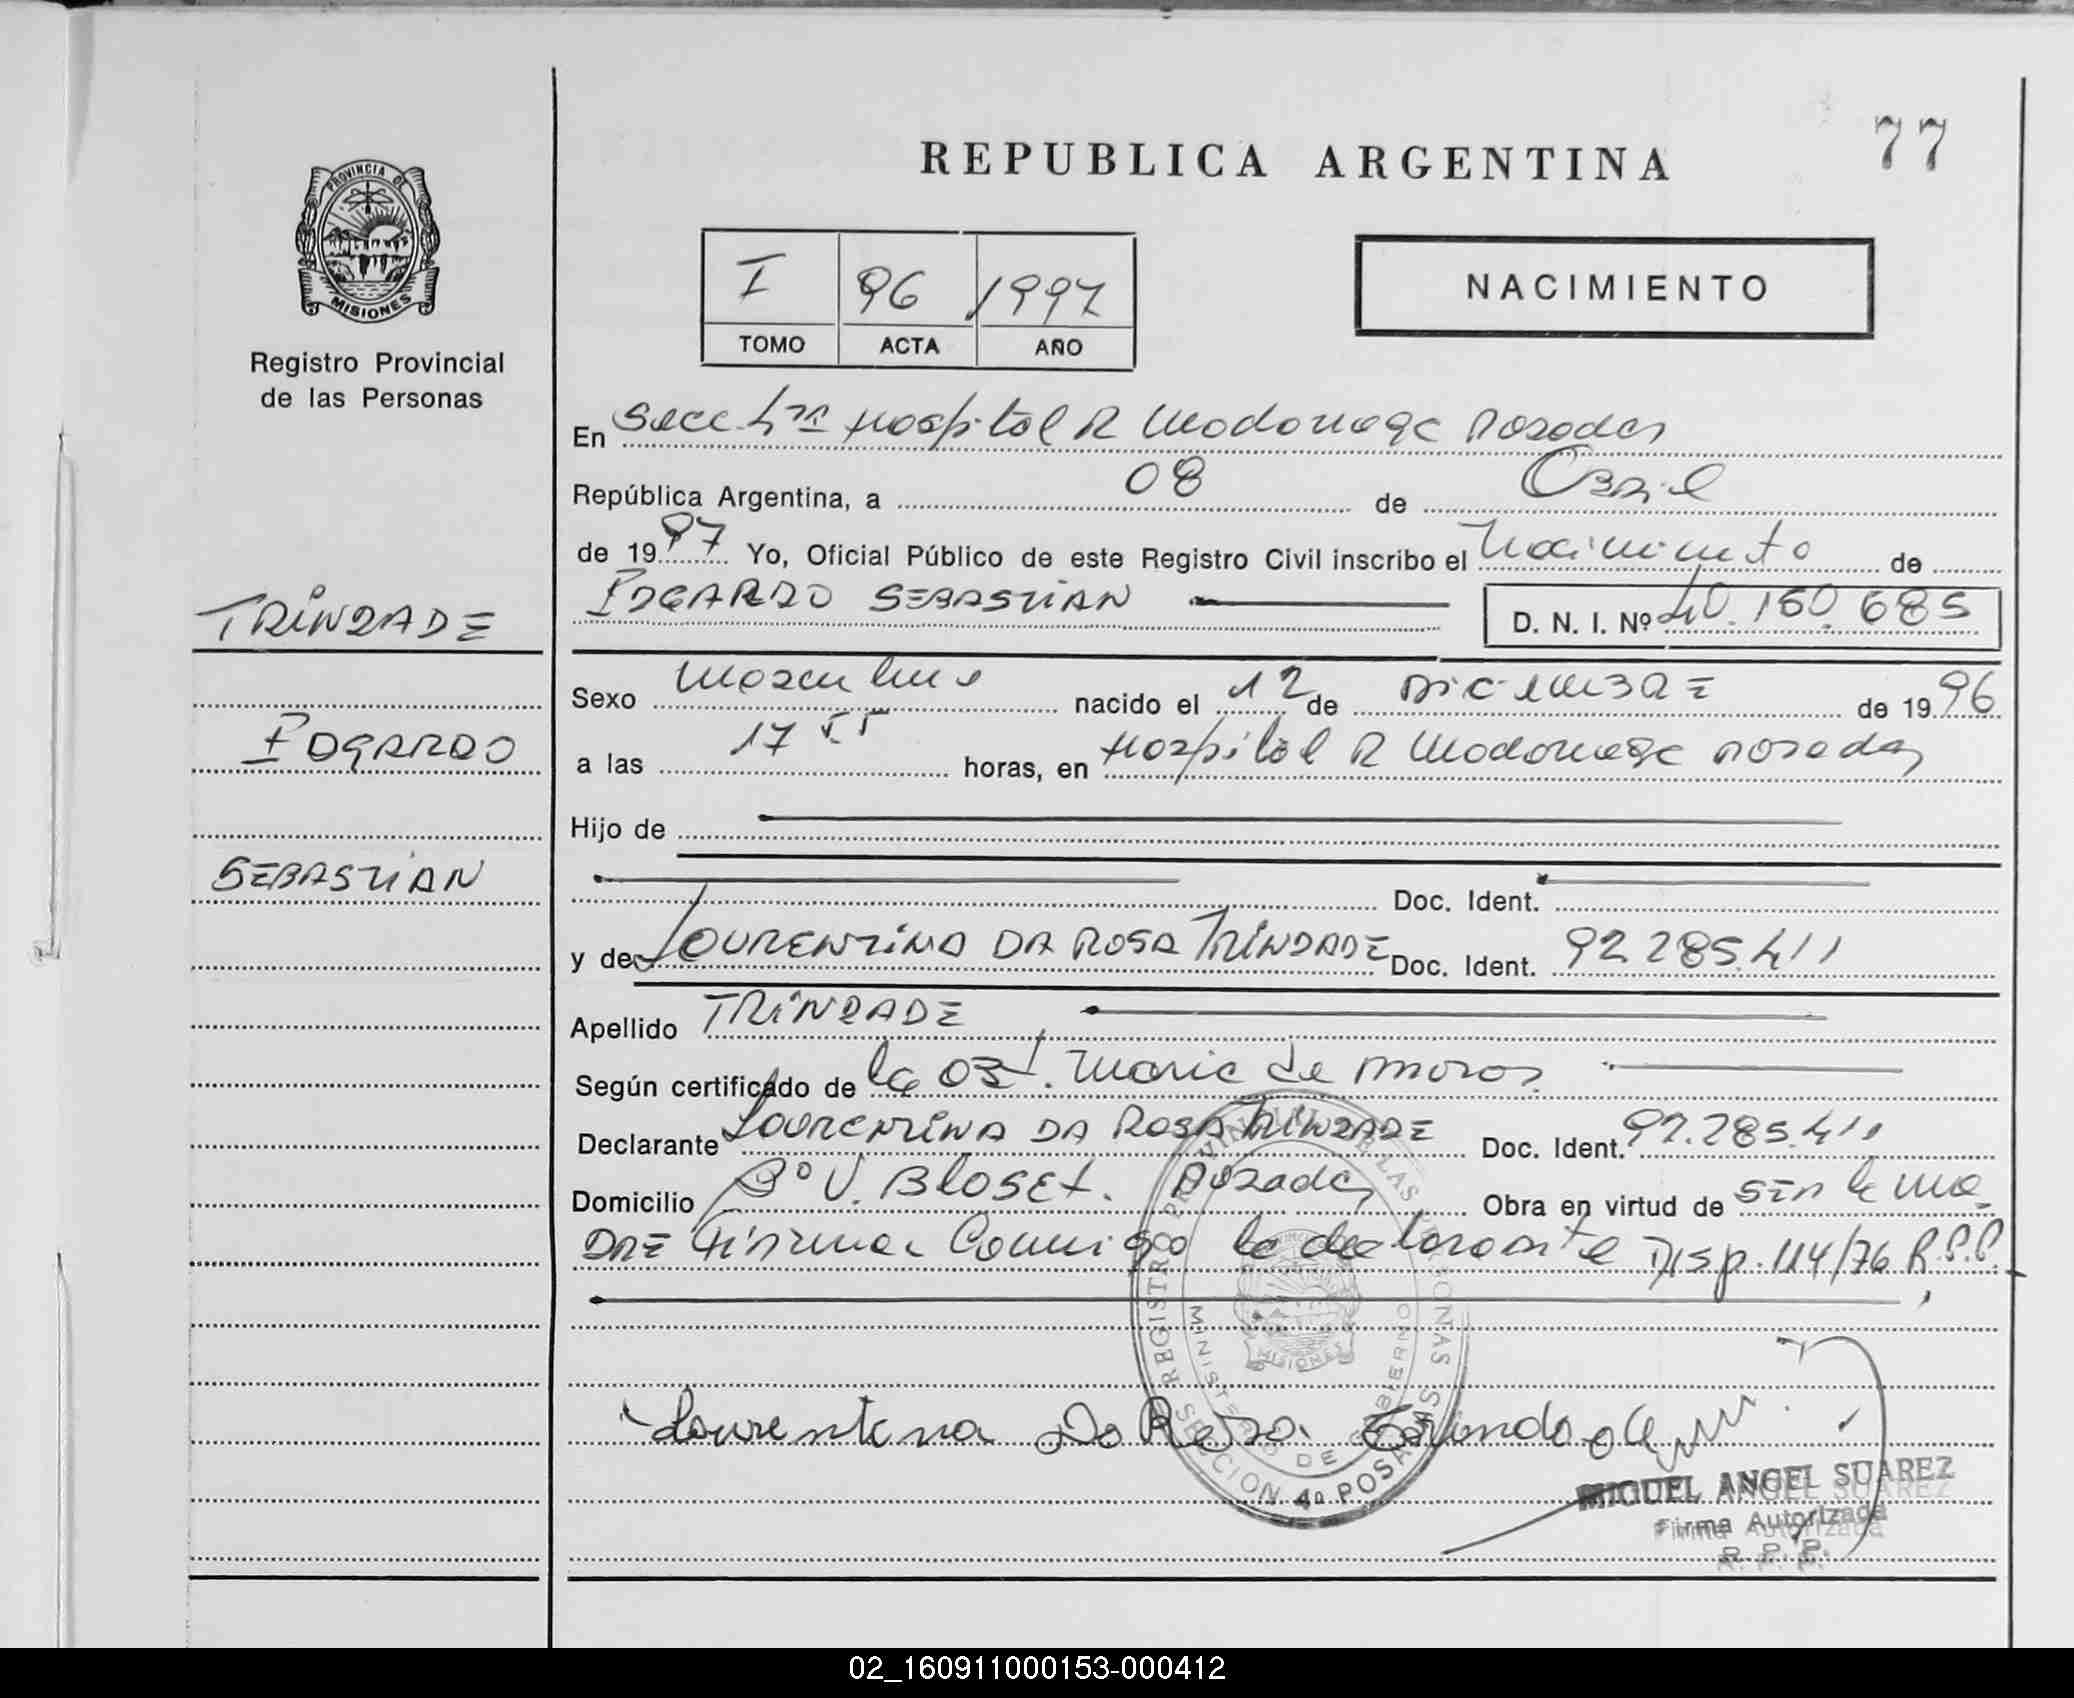 77
REPUBLICA ARGENTINA
PROVINCIA DE
MISIONES
Registro Provincial
de las Personas
I 96 1997
TOMO ACTA AÑO
NACIMIENTO
En Secc. 4ta Hospital R Madariaga Posadas
República Argentina, a 08 de Abril
de 1997 Yo, Oficial Público de este Registro Civil inscribo el Nacimiento de
TRINDADE
EDGARDO SEBASTIAN D. N. I. Nº 40.150.685
Sexo Masculino nacido el 12 de DiCiEMBRE de 1996
EDGARDO
a las 17 55 horas, en Hospital R Madariaga Posadas
Hijo de
SEBASTIAN
Doc. Ident.
y de LOURENTINA DA ROSA TRINDADE Doc. Ident. 92.285.411
Apellido TRINDADE
Según certificado de la Obst. Maria de
Declarante LOURENTINA DA ROSA TRINDADE Doc. Ident. 92.285.411
Domicilio Bº V. Posadas Obra en virtud de SER la MA-
DRE Firma Conmigo la declarante Disp. 114/76 R.P.P.
REGISTRO PROVINCIAL DE LAS PERSONAS
MINISTERIO DE GOBIERNO
MISIONES
SECCION 4ª POSADAS
Lourentina Da Rosa Trindade
MIGUEL ANGEL SUAREZ
Firma Autorizada
R. P. P.
02_160911000153-000412